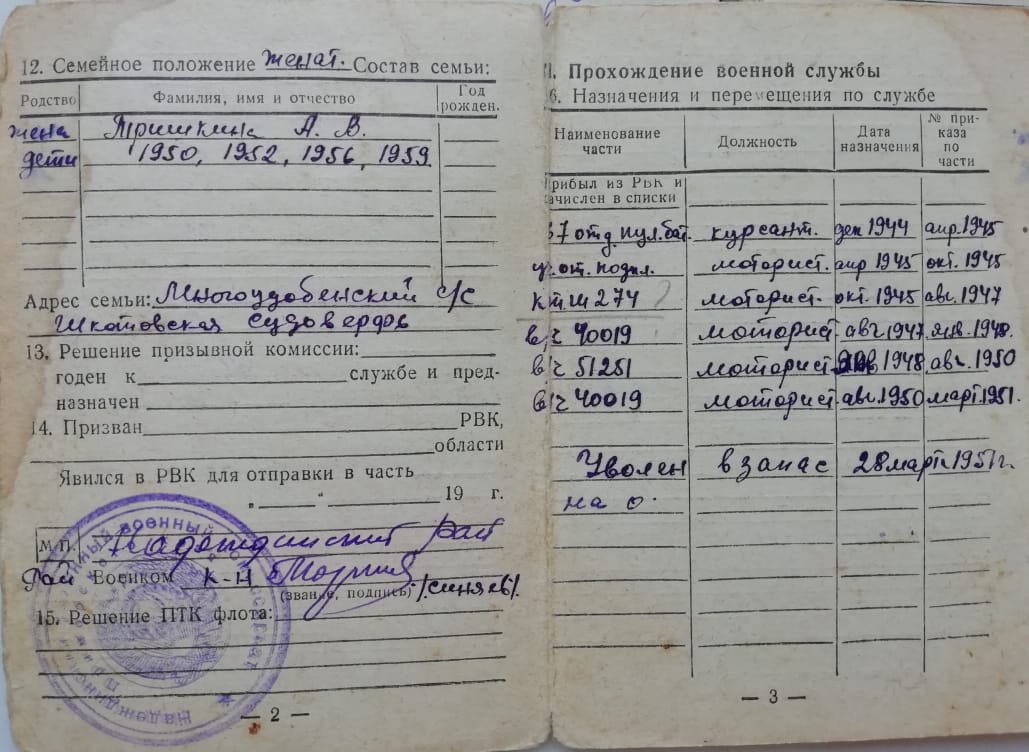 12. Семейное положение женат. Состав семьи:
Родство
Фамилия, имя и отчество
Год
рожден.
жена Тришкина А. В.
дети 1950, 1952, 1956, 1959.
Адрес семьи: Многоудобенский с/с
Шкотовская судоверфь
13. Решение призывной комиссии:
годен к службе и пред-
назначен
14. Призван РВК,
области
Явился в РВК для отправки в часть
19 г.
М.П. Надеждинский рай
Рай Военком к-н
(звание, подпись)
15. Решение ПТК флота:
— 2 —
I. Прохождение военной службы
6. Назначения и перемещения по службе
Наименование
части
Должность
Дата
назначения
№ при-
каза
по
части
Прибыл из РВК и
зачислен в списки
7 отд. пул. бат. курсант. дек 1944 апр. 1945
от. подпл. моторист. апр 1945 окт. 1945
274 моторист. окт. 1945 авг. 1947
в/ч 40019 моторист авг 1947 янв. 1948.
в/ч 51251 моторист янв 1948, авг. 1950
в/ч 40019 моторист авг. 1950 март 1951.
Уволен в запас 28 март. 1951 г.
на о.
— 3 —